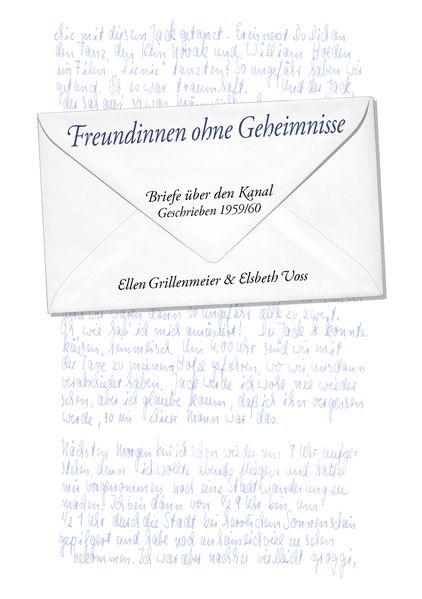 chic mit diesem Jack getanzt. Erinnerst Du Dich an
den Tanz, den Kim Novak und William Holden
im Film "Picnic" tanzten? So ungefähr haben wir
getanzt. Oh, es war traumhaft. Und der Jack,
der sah aus so was
Freundinnen ohne Geheimnisse
Briefe über den Kanal
Geschrieben 1959/60
Ellen Grillenmeier & Elsbeth Voss
und wir waren dann so ungefähr alle zu zweit.
Oh, wie hab' ich mich amüsiert! Der Jack konnte
küssen, himmlisch. Um 4.00 Uhr sind wir mit
der Taxe zu meinem Hotel gefahren, wo wir uns dann
verabschiedet haben. Jack werde ich wohl nie wieder
sehen, aber ich glaube kaum, daß ich ihn vergessen
werde, so ein Mann war das.
Nächsten Morgen bin ich schon wieder um 8 Uhr aufge-
standen, denn ich wollte abends fliegen und hatte
mir vorgenommen, noch eine Stadtwanderung zu
machen. Ich bin dann von ½ 9 Uhr bis um
½ 1 Uhr durch die Stadt bei herrlichem Sonnenschein
gepilgert und habe noch unheimlich viel zu sehen
bekommen. Ich war aber nachher vielleicht groggi,